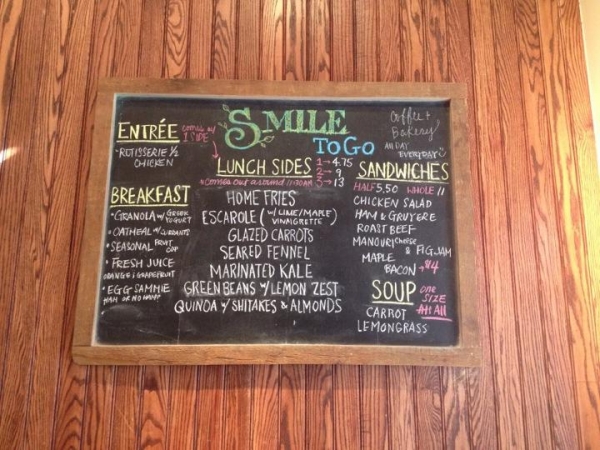 SMILE
TO GO
Coffee +
Bakery
ALL DAY
EVERYDAY
ENTRÉE comes w/
1 SIDE
• ROTISSERIE 1/2
CHICKEN
BREAKFAST
• GRANOLA w/ GREEK
YOGURT
• OATMEAL w/ CURRANTS
• SEASONAL FRUIT
CUP
• FRESH JUICE
ORANGE & GRAPEFRUIT
• EGG SAMMIE
HAM OR NO HAM?
LUNCH SIDES
1 → 4.75
2 → 9
3 → 13
* Comes out around 11:30AM
HOME FRIES
ESCAROLE ( w/ LIME/MAPLE
VINAIGRETTE )
GLAZED CARROTS
SEARED FENNEL
MARINATED KALE
GREEN BEANS w/ LEMON ZEST
QUINOA w/ SHITAKES & ALMONDS
SANDWICHES
HALF 5.50 WHOLE 11
CHICKEN SALAD
HAM & GRUYERE
ROAST BEEF
MANOURI cheese
& FIG JAM
MAPLE
BACON → $4
SOUP one
SIZE
$4
CARROT
LEMONGRASS